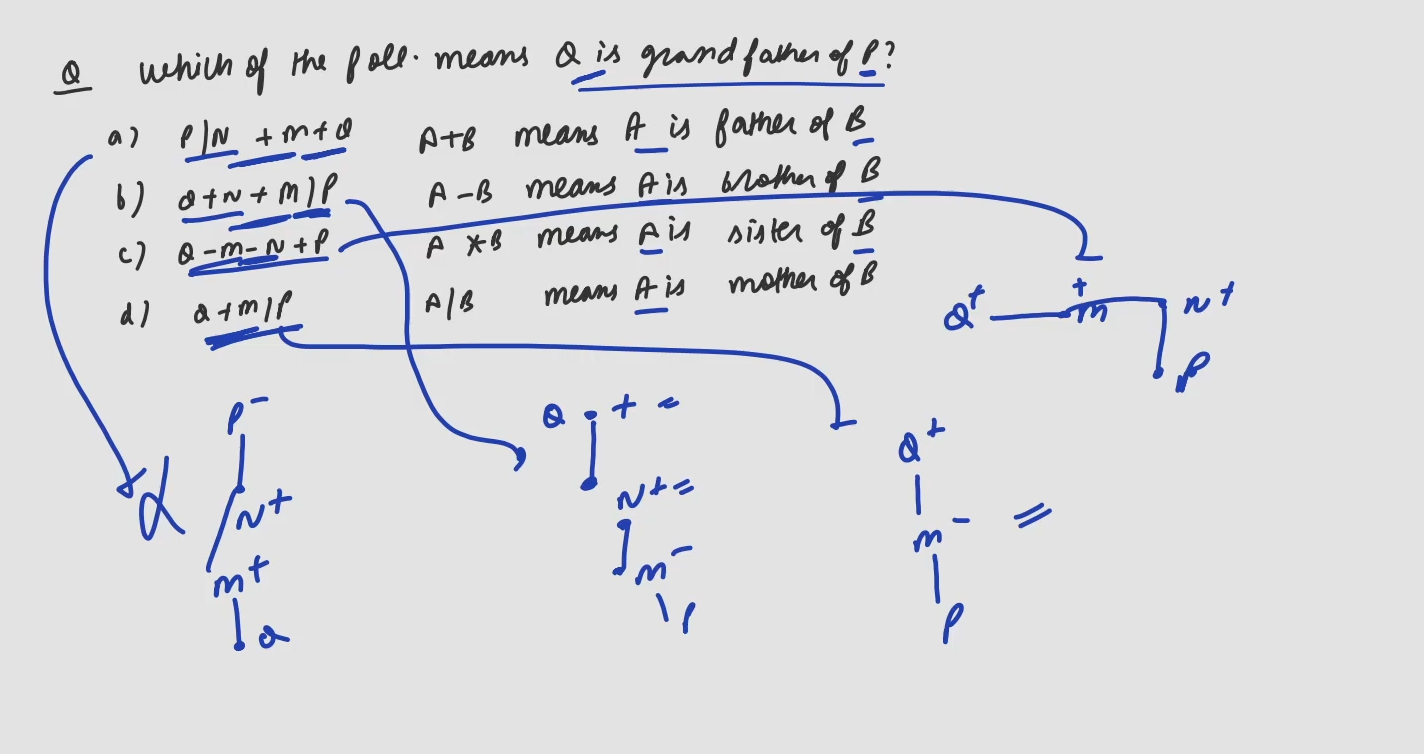 Q which of the foll. means Q is grand father of P?
a) P|N + m + Q A+B means A is father of B
b) Q + N + M | P A - B means A is brother of B
c) Q - m - N + P A * B means A is sister of B
d) Q + m | P A | B means A is mother of B
Q+ m+ N+
P
P-
N+
m+
Q
Q + =
N+ =
m-
P
Q+
m- =
P